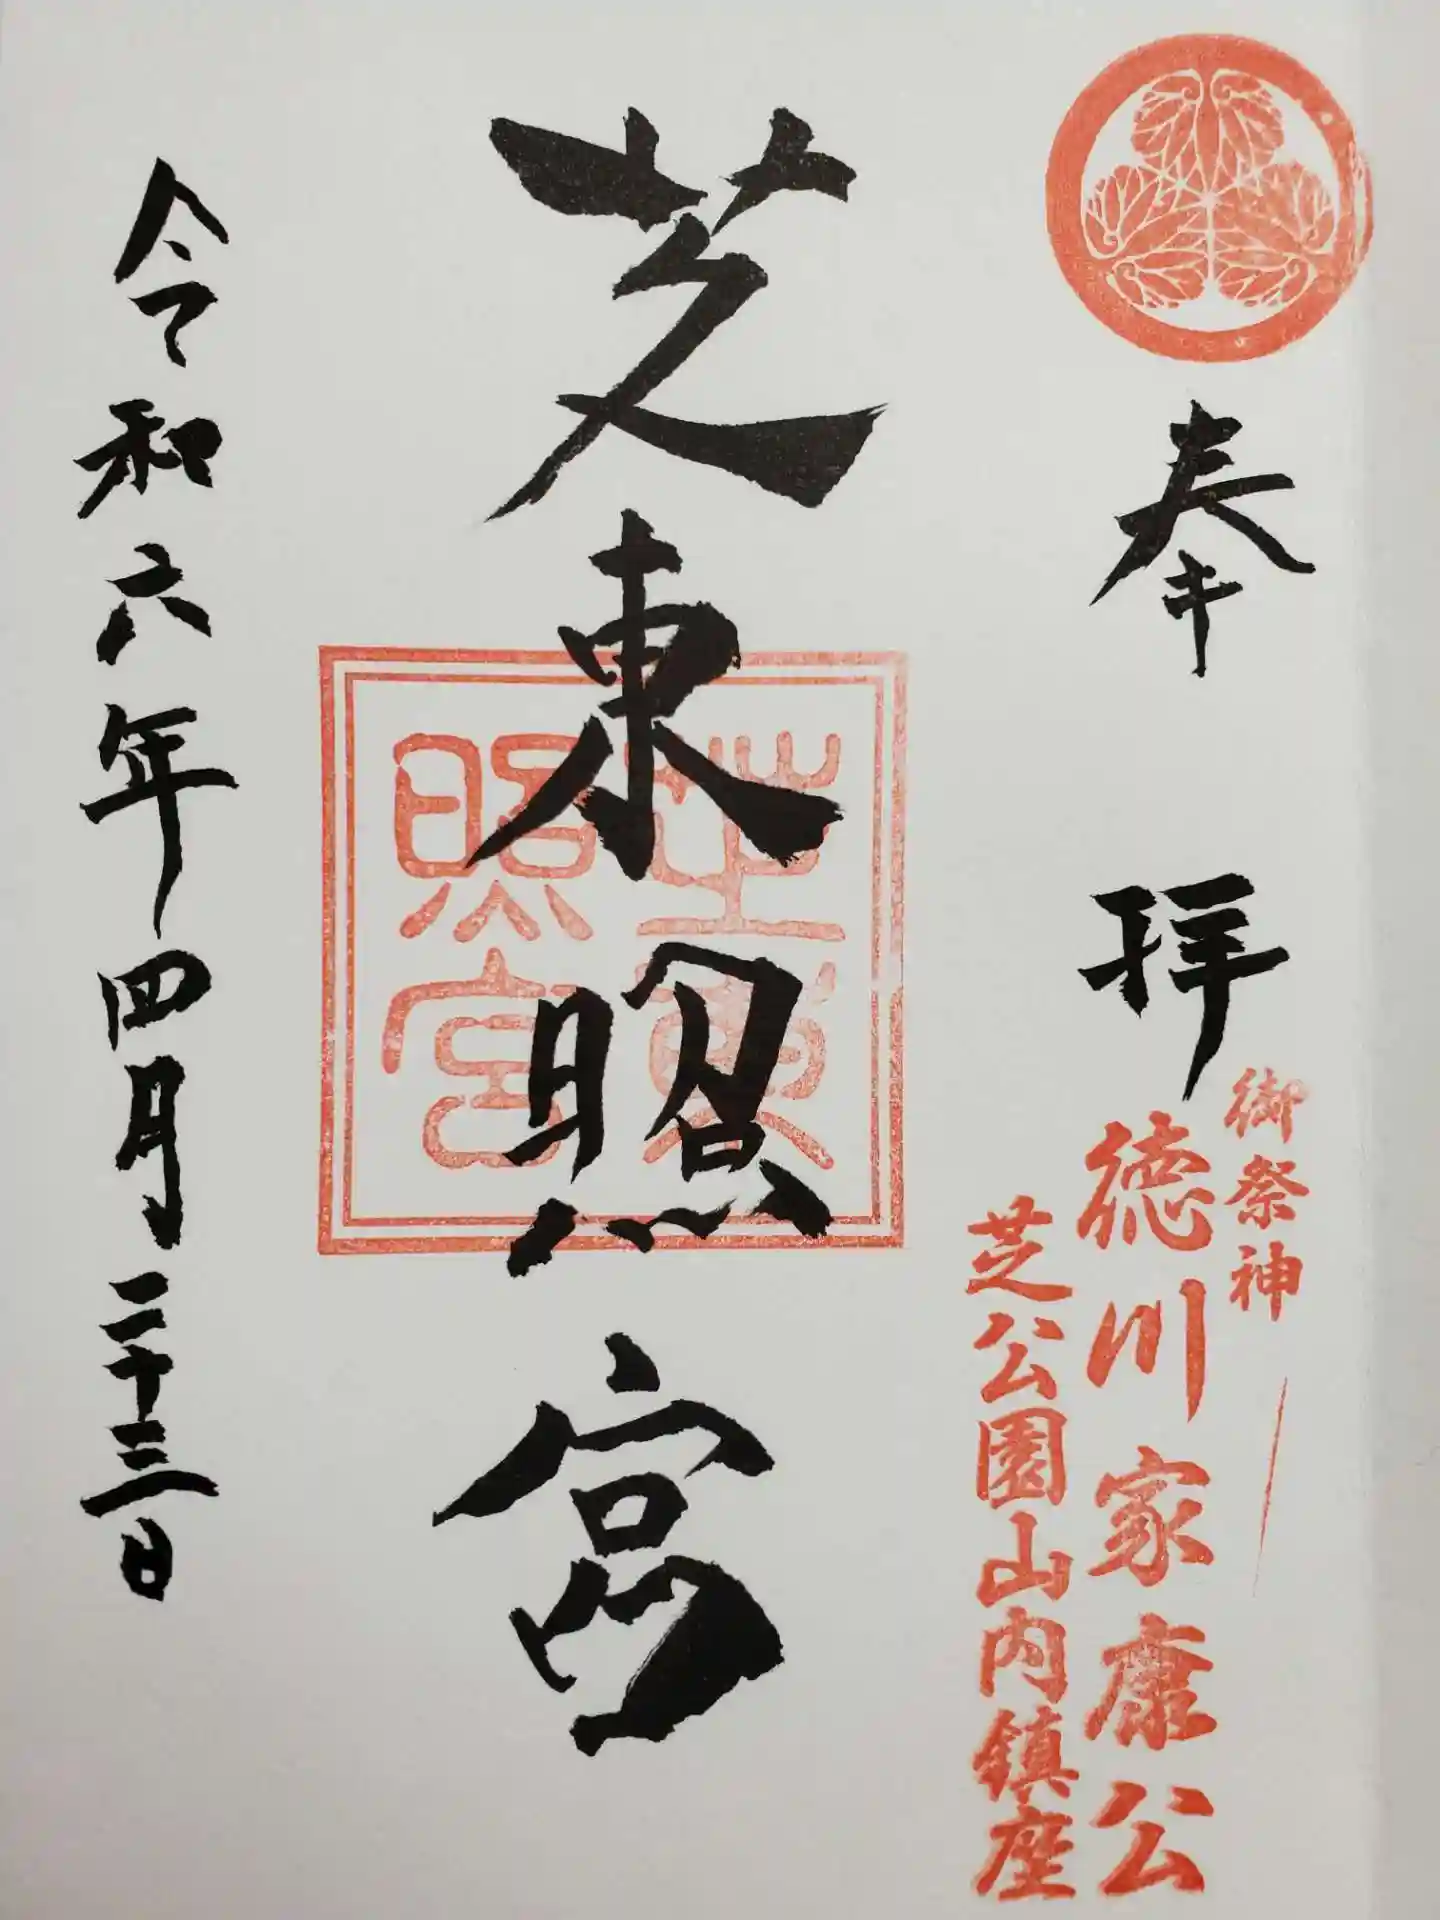 奉拝
御祭神
徳川家康公
芝公園山内鎮座
芝東照宮
芝東
照宮
令和六年四月二十三日